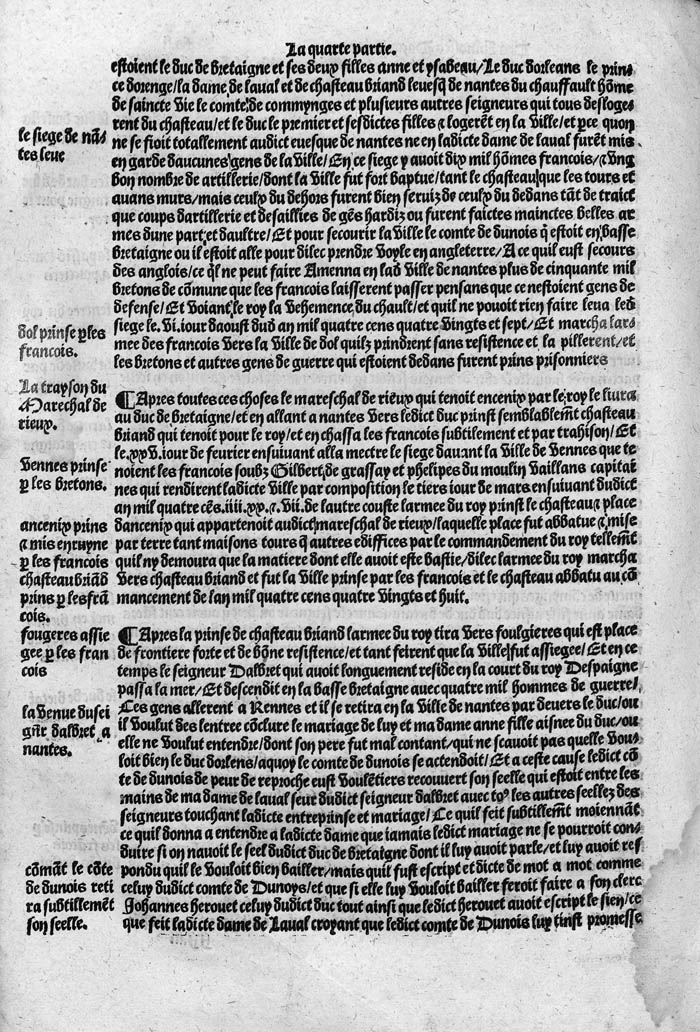 La quarte partie.
estoient le duc de bretaigne et ses deux filles anne et ysabeau/Le duc dorleans le prin⸗
ce dorenge/la dame de laual et de chasteau briand leuesq̃ de nantes du chauffault hõme
de saincte vie le comte de commynges et plusieurs autres seigneurs qui tous desloge⸗
rent du chasteau/et le duc le premier et sesdictes filles ⁊ logerẽt en la ville/et pce quon
ne se fioit totallement audict euesque de nantes ne en ladicte dame de laual furẽt mis
en garde daucunes gens de la ville/En ce siege y auoit dix mil hõmes francois/⁊ vng
bon nombre de artillerie/dont la ville fut fort baptue/tant le chasteau que les tours et
auans murs/mais ceulx du dehors furent bien seruiz de ceulx du dedans tãt de traict
que coups dartillerie et desaillies de gẽs hardiz ou furent faictes mainctes belles ar
mes dune part et daultre/Et pour secourir la ville le comte de dunois q̃ estoit en basse
bretaigne ou il estoit alle pour dilec prendre voyle en angleterre/A ce quil eust secours
des anglois/ce q̃l ne peut faire Amenna en lad ville de nantes plus de cinquante mil
bretons de cõmune que les francois laisserent passer pensans que ce nestoient gens de
defense/Et voiant le roy la vehemence du chault/et quil ne pouoit rien faire leua led
siege le. vi. iour daoust dud an mil quatre cens quatre vingts et sept/Et marcha lar⸗
mee des francois vers la ville de dol quilz prindrent sans resistence et la pillerent/et
les bretons et autres gens de guerre qui estoient dedans furent prins prisonniers
le siege de nã⸗
tes leue
dol prinse p les
francois.
¶Apres toutes ces choses le mareschal de rieux qui tenoit encenix par le roy le liura
au duc de bretaigne/et en allant a nantes vers ledict duc prinst semblablemẽt chasteau
briand qui tenoit pour le roy/et en chassa les francois subtilement et par trahison/Et
le. xxv. iour de feurier ensuiuant alla mectre le siege dauant la ville de vennes que te
noient les francois soubz Gilbert de grassay et phelipes du moulin vaillans capitai
nes qui rendirent ladicte ville par composition le tiers iour de mars ensuiuant dudict
an mil quatre cẽs. iiii. xx. ⁊. vii. de lautre couste larmee du roy prinst le chasteau ⁊ place
dancenix qui appartenoit audict mareschal de rieux/laquelle place fut abbatue ⁊ mise
par terre tant maisons tours q̃ autres ediffices par le commandement du roy tellemẽt
quil ny demoura que la matiere dont elle auoit este bastie/dilec larmee du roy marcha
vers chasteau briand et fut la ville prinse par les francois et le chasteau abbatu au cõ
mancement de lan mil quatre cens quatre vingts et huit.
La trayson du
Marechal de
rieux.
Vennes prinse
p les bretons.
ancenix prins
⁊ mis en ruyne
p les francois
chasteau briãd
prins p les frã
cois.
¶Apres la prinse de chasteau briand larmee du roy tira vers foulgieres qui est place
de frontiere forte et de bõne resistence/et tant feirent que la ville fut assiegee/Et en ce
temps le seigneur Dalbret qui auoit longuement reside en la court du roy Despaigne
passa la mer/Et descendit en la basse bretaigne auec quatre mil hommes de guerre/
Ces gens allerent a Rennes et il se retira en la ville de nantes par deuers le duc/ou
il voulut des lentree cõclure le mariage de luy et ma dame anne fille aisnee du duc/ou
elle ne voulut entendre/dont son pere fut mal contant/qui ne scauoit pas quelle vou⸗
loit bien le duc dorlens/aquoy le comte de dunois se actendoit/Et a ceste cause ledict cõ
te de dunois de peur de reproche eust voulẽtiers recouuert son seelle qui estoit entre les
mains de ma dame de laual seur dudict seigneur dalbret auec toꝰ les autres seellez des
seigneurs touchant ladicte entreprinse et mariage/Ce quil feit subtillemẽt moiennãt
ce quil donna a entendre a ladicte dame que iamais ledict mariage ne se pourroit con⸗
duire si on nauoit le seel dudict duc de bretaigne dont il luy auoit parle/et luy auoit res
pondu quil le vouloit bien bailler/mais quil fust escript et dicte de mot a mot comme
celuy dudict comte de Dunoys/et que si elle luy vouloit bailler feroit faire a son clerc
Johannes herouet celuy dudict duc tout ainsi que ledict herouet auoit escript le sien/ce
que feit ladicte dame de Laual croyant que ledict comte de Dunois luy tinst promesse
fougeres assie
gee p les fran
cois
la venue du sei
gñr dalbret a
nantes.
cõmãt le cõte
de dunois reti
ra subtillemẽt
son seelle.